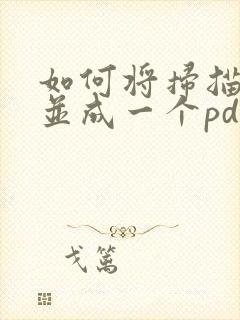 如何将掃描
並成一个pd
戈篱